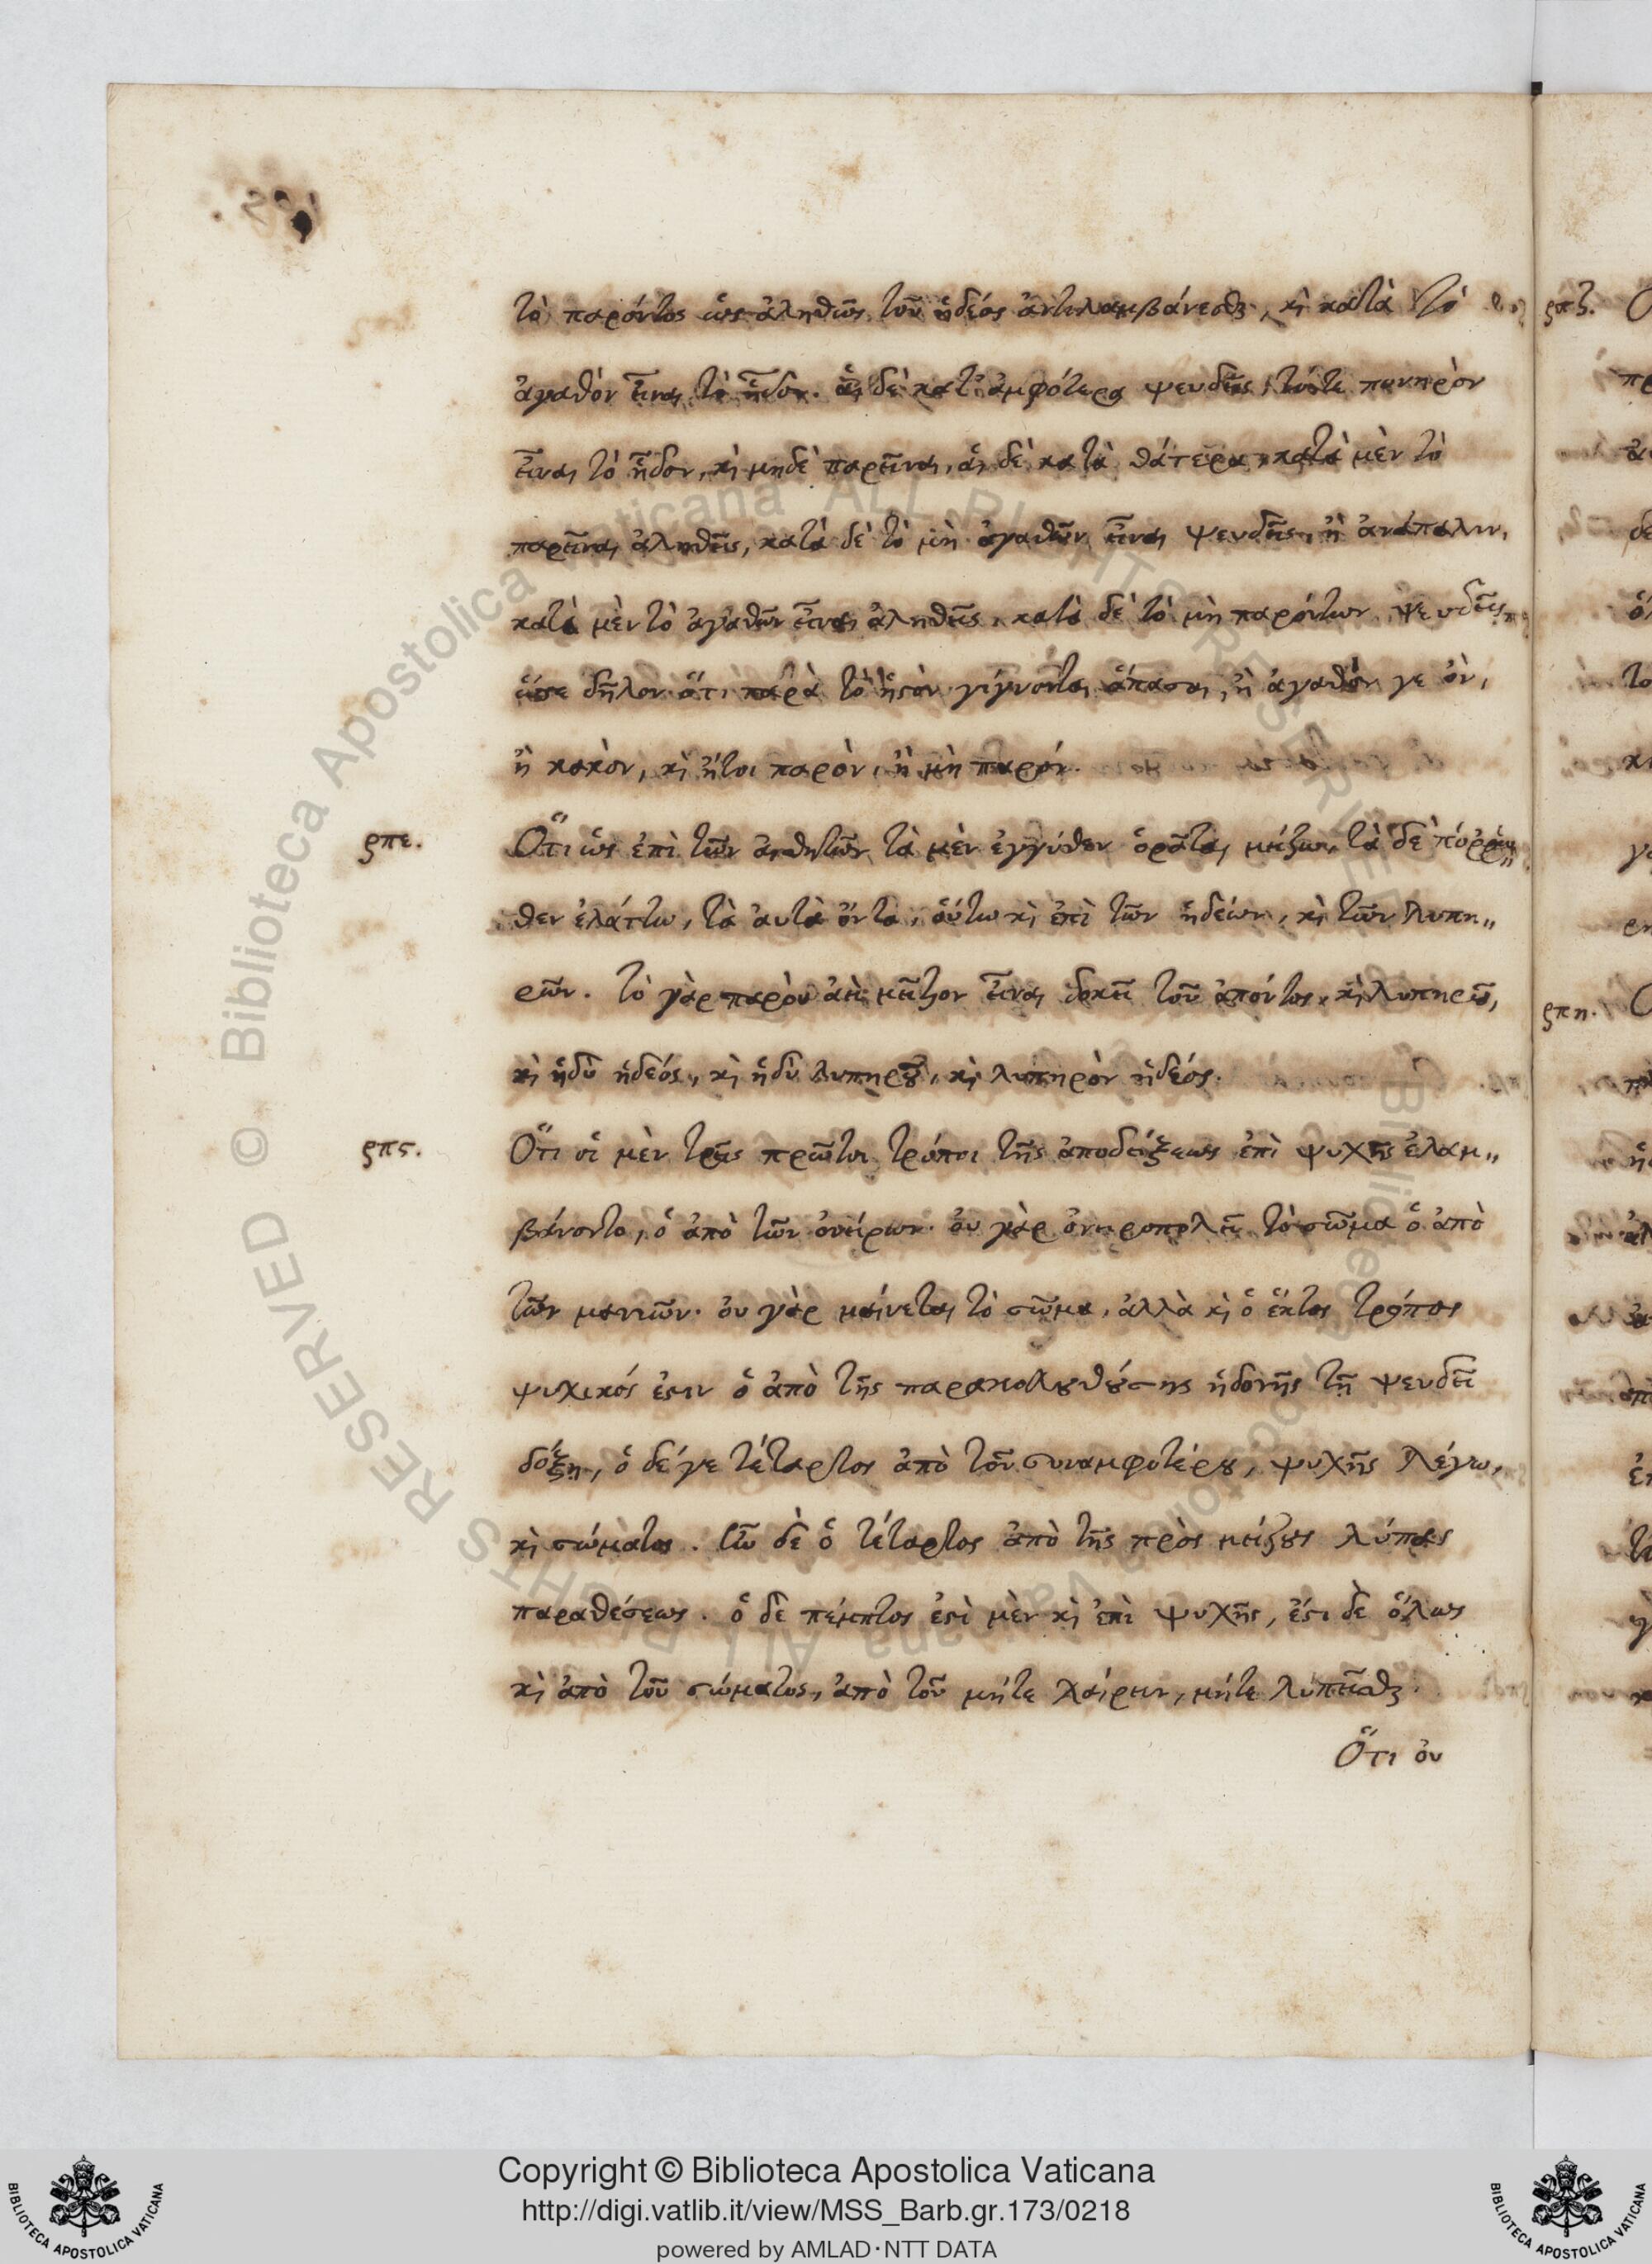 τὸ παρόντος ὡς ἀληθῶς τοῦ ἡδέος ἀντιλαμβάνεσθαι, κὶ κατὰ τὸ
ἀγαθὸν εἶναι τὸ ἧδον. αἱ δὲ κατ' ἀμφότερα ψευδεῖς, τῷ τε πονηρὸν
εἶναι τὸ ἧδον, κὶ μηδὲ παρεῖναι, αἱ δὲ κατὰ θάτερα, κατὰ μὲν τὸ
παρεῖναι ἀληθεῖς, κατὰ δὲ τὸ μὴ ἀγαθῶν εἶναι ψευδεῖς, ἢ ἀνάπαλιν,
κατὰ μὲν τὸ ἀγαθῶν εἶναι ἀληθεῖς, κατὰ δὲ τὸ μὴ παρόντων ψευδεῖς,
ὥστε δῆλον ὅτι παρὰ τὸ ἡστὸν γίγνονται ἅπασαι, ἢ ἀγαθόν γε ὂν,
ἢ κακὸν, κὶ ἤτοι παρὸν, ἢ μὴ παρόν.
ρπε. Ὅτι ὡς ἐπὶ τῶν αἰσθητῶν τὰ μὲν ἐγγύθεν ὁρᾶται μείζω, τὰ δὲ πόῤῥω„
θεν ἐλάττω, τὰ ἀυτὰ ὄντα, ὁύτω κὶ ἐπὶ τῶν ἡδέων, κὶ τῶν λυπη„
ρῶν. τὸ γὰρ παρὸν ἀεὶ μεῖζον εἶναι δοκεῖ τοῦ ἀπόντος, κὶ λυπηροῦ,
κὶ ἡδὺ ἡδέος, κὶ ἡδὺ λυπηροῦ, κὶ λυπηρὸν ἡδέος.
ρπϛ. Ὅτι οἱ μὲν τρεῖς πρῶτοι τρόποι τῆς ἀποδείξεως ἐπὶ ψυχῆς ἐλαμ„
βάνοντο, ὁ ἀπὸ τῶν ὀνείρων· ὀυ γὰρ ὀνειροπολεῖ τὸ σῶμα ὁ ἀπὸ
τῶν μανιῶν· ὀυ γὰρ μαίνεται τὸ σῶμα, ἀλλὰ κὶ ὁ ἕκτος τρόπος
ψυχικός ἐστιν ὁ ἀπὸ τῆς παρακολουθούσης ἡδονῆς τῇ ψευδεῖ
δόξῃ, ὁ δέ γε τέταρτος ἀπὸ τοῦ συναμφοτέρου, ψυχῆς λέγω,
κὶ σώματος. ἦν δὲ ὁ τέταρτος ἀπὸ τῆς πρὸς μείζους λύπας
παραθέσεως. ὁ δὲ πέμπτος ἐστὶ μὲν κὶ ἐπὶ ψυχῆς, ἔστι δὲ ὅλως
κὶ ἀπὸ τοῦ σώματος, ἀπὸ τοῦ μήτε χαίρειν, μήτε λυπεῖσθαι.
Ὅτι ὀυ
ρπζ.
ρπη.
© Biblioteca Apostolica Vaticana ALL RIGHTS RESERVED
© Biblioteca Apostolica Vaticana ALL RIGHTS RESERVED
Copyright © Biblioteca Apostolica Vaticana
http://digi.vatlib.it/view/MSS_Barb.gr.173/0218
powered by AMLAD·NTT DATA
BIBLIOTECA APOSTOLICA VATICANA
BIBLIOTECA APOSTOLICA VATICANA